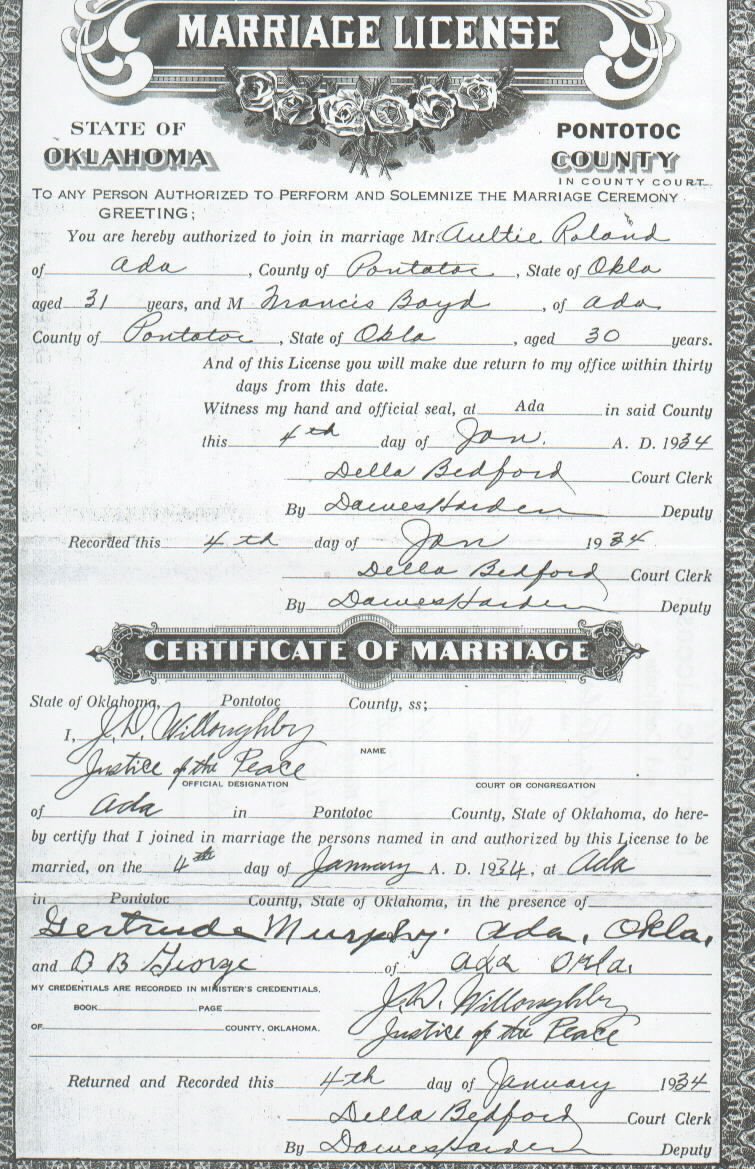 MARRIAGE LICENSE
STATE OF OKLAHOMA
PONTOTOC COUNTY
IN COUNTY COURT
TO ANY PERSON AUTHORIZED TO PERFORM AND SOLEMNIZE THE MARRIAGE CEREMONY
GREETING;
You are hereby authorized to join in marriage Mr. Aultie Roland
of Ada, County of Pontotoc, State of Okla
aged 31 years, and M Francis Boyd, of Ada
County of Pontotoc, State of Okla, aged 30 years.
And of this License you will make due return to my office within thirty
days from this date.
Witness my hand and official seal, at Ada in said County
this 4th day of Jan. A. D. 1934
Della Bedford Court Clerk
By Dawes Harden Deputy
Recorded this 4th day of Jan 1934
Della Bedford Court Clerk
By Dawes Harden Deputy
CERTIFICATE OF MARRIAGE
State of Oklahoma, Pontotoc County, ss;
I, J.D. Willoughby
NAME
Justice of the Peace
OFFICIAL DESIGNATION COURT OR CONGREGATION
of Ada in Pontotoc County, State of Oklahoma, do here-
by certify that I joined in marriage the persons named in and authorized by this License to be
married, on the 4th day of January A. D. 1934, at Ada
in Pontotoc County, State of Oklahoma, in the presence of
Gertrude Murphy. Ada, Okla.
and B B George of Ada Okla.
MY CREDENTIALS ARE RECORDED IN MINISTER'S CREDENTIALS,
BOOK PAGE
OF COUNTY, OKLAHOMA.
J.D. Willoughby
Justice of the Peace
Returned and Recorded this 4th day of January 1934
Della Bedford Court Clerk
By Dawes Harden Deputy